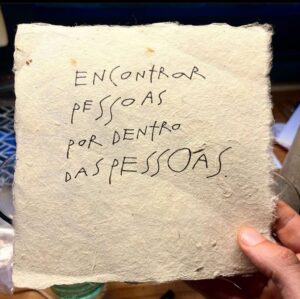 ENCONTRAR
PESSOAS
POR DENTRO
DAS PESSOAS.